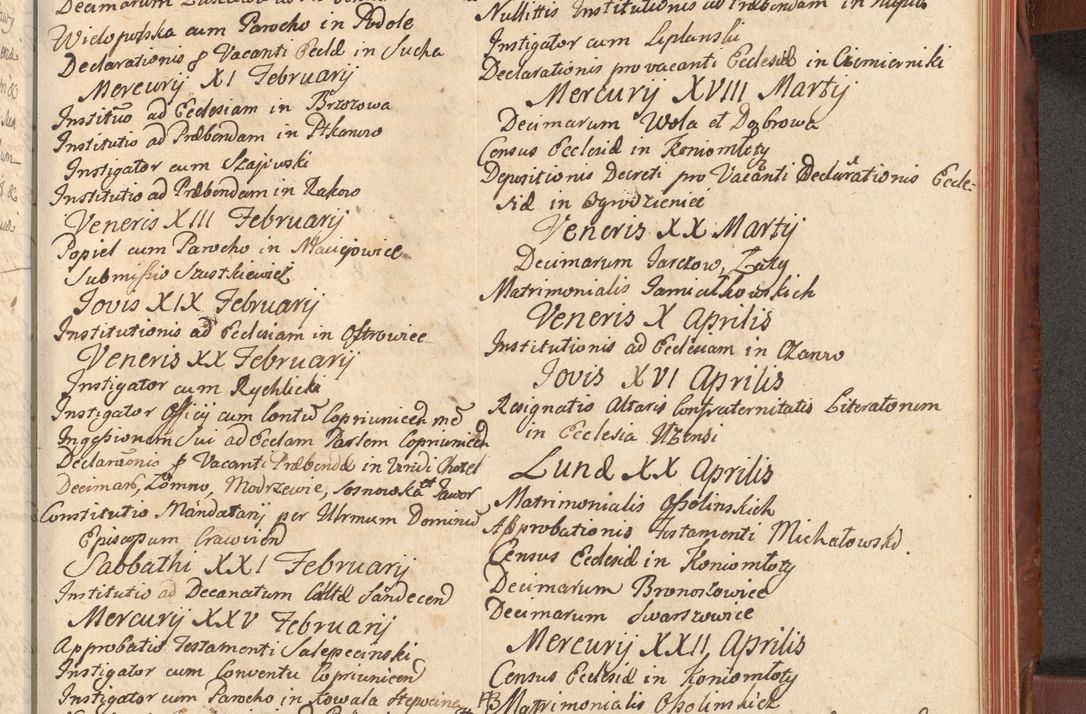 Wielopolska cum Parocho in Podole
Declarationis p Vacanti Eccld in Sucha
Mercurij XI Februarij
Institutio ad Ecclesiam in Brzozowa
Institutio ad Præbendam in Ptkanowo
Instigator cum Szajewski
Institutio ad Præbendam in Rakow
Veneris XIII Februarij
Popiel cum Parocho in Maciejowice
Submissio Szustkiewicz
Jovis XIX Februarij
Institutionis ad Ecclesiam in Ostrowice
Veneris XX Februarij
Instigator cum Rychlicki
Instigator Officij cum Contu Copriunicen
Ingessionum sui ad Ecclam Parlem Copriunicen
Declaraonis p Vacanti Præbendæ in
Decimar, Łomno, Modrzewie, Sosnowska et Jawor
Constitutio Mandatarij per Illrmum Dominu
Episcopum Cracovien
Sabbathi XXI Februarij
Institutio ad Decanatum Sandecen
Mercurij XXV Februarij
Approbatio Testamenti Salepecinski
Instigator cum Conventu Copriunicen
Instigator cum Parocho in Kowala Stepocina
Nullitis Institutionis ad Præbendam in
Instigator cum Liplanski
Declarationis pro vacanti Ecclesiæ in Ciemierniki
Mercurij XVIII Martij
Decimarum Wola et Dąbrowa
Census Ecclesiæ in Koniomłoty
Depositionis Decreti pro Vacanti Declarationis Eccle-
siæ in Ogrodzieniec
Veneris XX Martij
Decimarum Jarczow, Zaty
Matrimonialis Jamiołkowskich
Veneris X Aprilis
Institutionis ad Ecclesiam in Czanow
Jovis XVI Aprilis
Resignatio Altaris Confraternitatis Literatorum
in Ecclesia
Lunæ XX Aprilis
Matrimonialis Ossolinskich
Approbationis Testamenti Michałowski.
Census Ecclesiæ in Koniomłoty
Decimarum Bronoszowice
Decimarum Swarszowice
Mercurij XXII, Aprilis
Census Ecclesiæ in Koniomłoty
Matrimonialis Ossolinskich